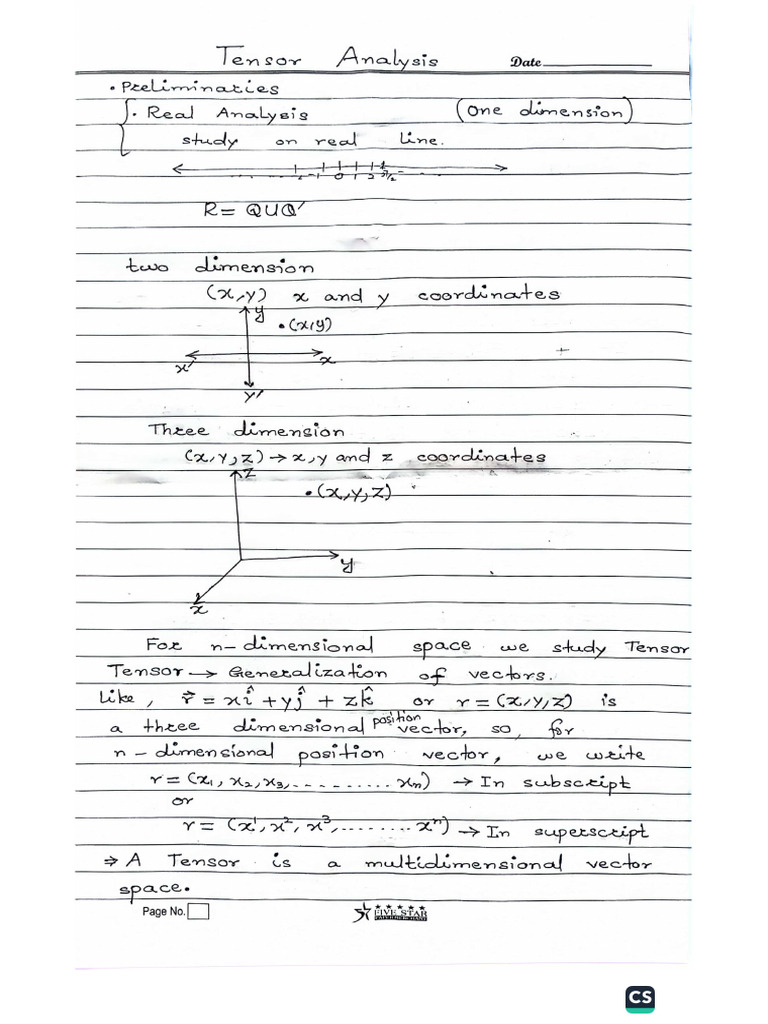 Tensor Analysis Date
• Preliminaries
• Real Analysis (One dimension)
study on real line.
-2 -1 0 1 2 5/2
R = Q∪Q'
two dimension
(x,y) x and y coordinates
y
•(x,y)
x' x
y'
Three dimension
(x,y,z) → x,y and z coordinates
z
•(x,y,z)
y
x
For n-dimensional space we study Tensor
Tensor → Generalization of vectors.
Like, r⃗ = xî + yĵ + zk̂ or r = (x,y,z) is
a three dimensional position vector, so, for
n-dimensional position vector, we write
r = (x₁, x₂, x₃, .......... xₙ) → In subscript
or
r = (x¹, x², x³, ........ xⁿ) → In superscript
⇒ A Tensor is a multidimensional vector
space.
Page No. FIVE STAR
CS